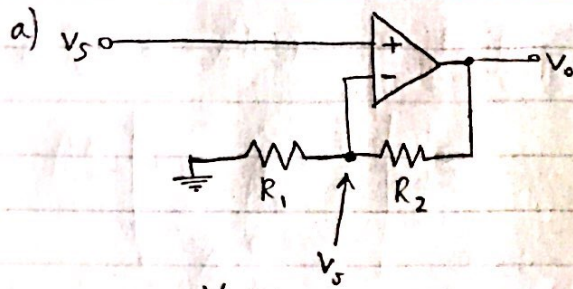 a) V_s + V_o
-
R_1 R_2
V_s